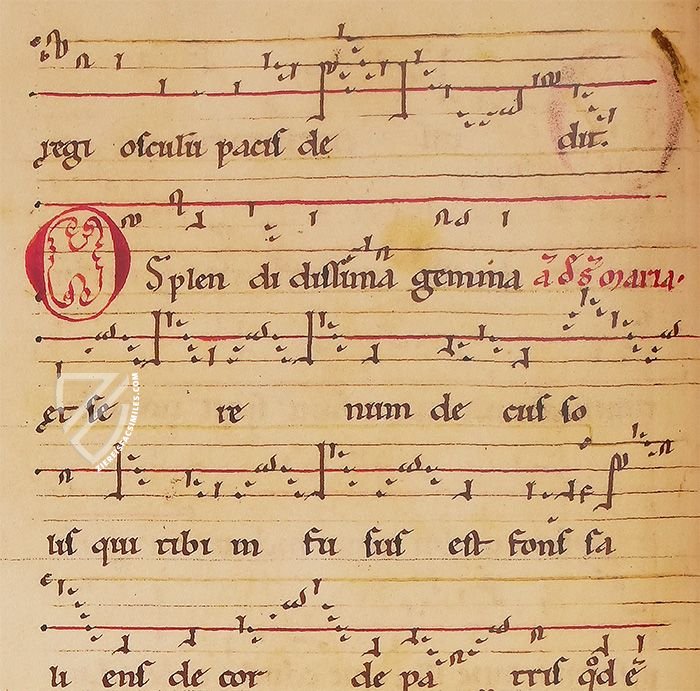 regi osculū pacis de dit.
O Splen di dissima gemma ā d s̄ maria.
et se re num de cus so
lis qui tibi in fu sus est fons sa
li ens de cor de pa tris qd ē
ZIEREISFACSIMILES.COM